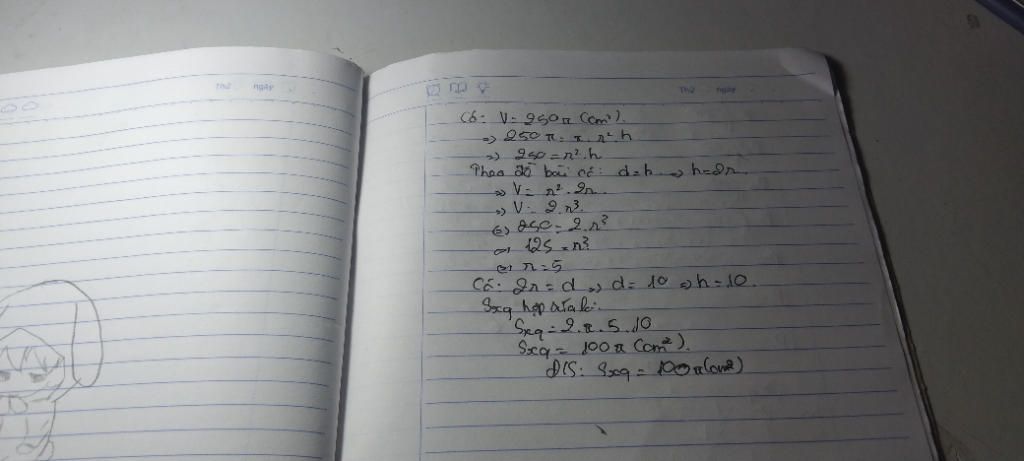 Thứ ngày
Thứ ngày
Có: V = 250π (cm³).
=> 250π = π.r².h
=> 250 = r².h
Theo đề bài có: d=h => h=2r
=> V = r².2r
=> V = 2.r³
<=> 250 = 2.r³
<=> 125 = r³
<=> r = 5
Có: 2r = d => d = 10 => h = 10.
Sxq hộp sữa là:
Sxq = 2.π.5.10
Sxq = 100π (cm²).
Đ/S: Sxq = 100π (cm²)